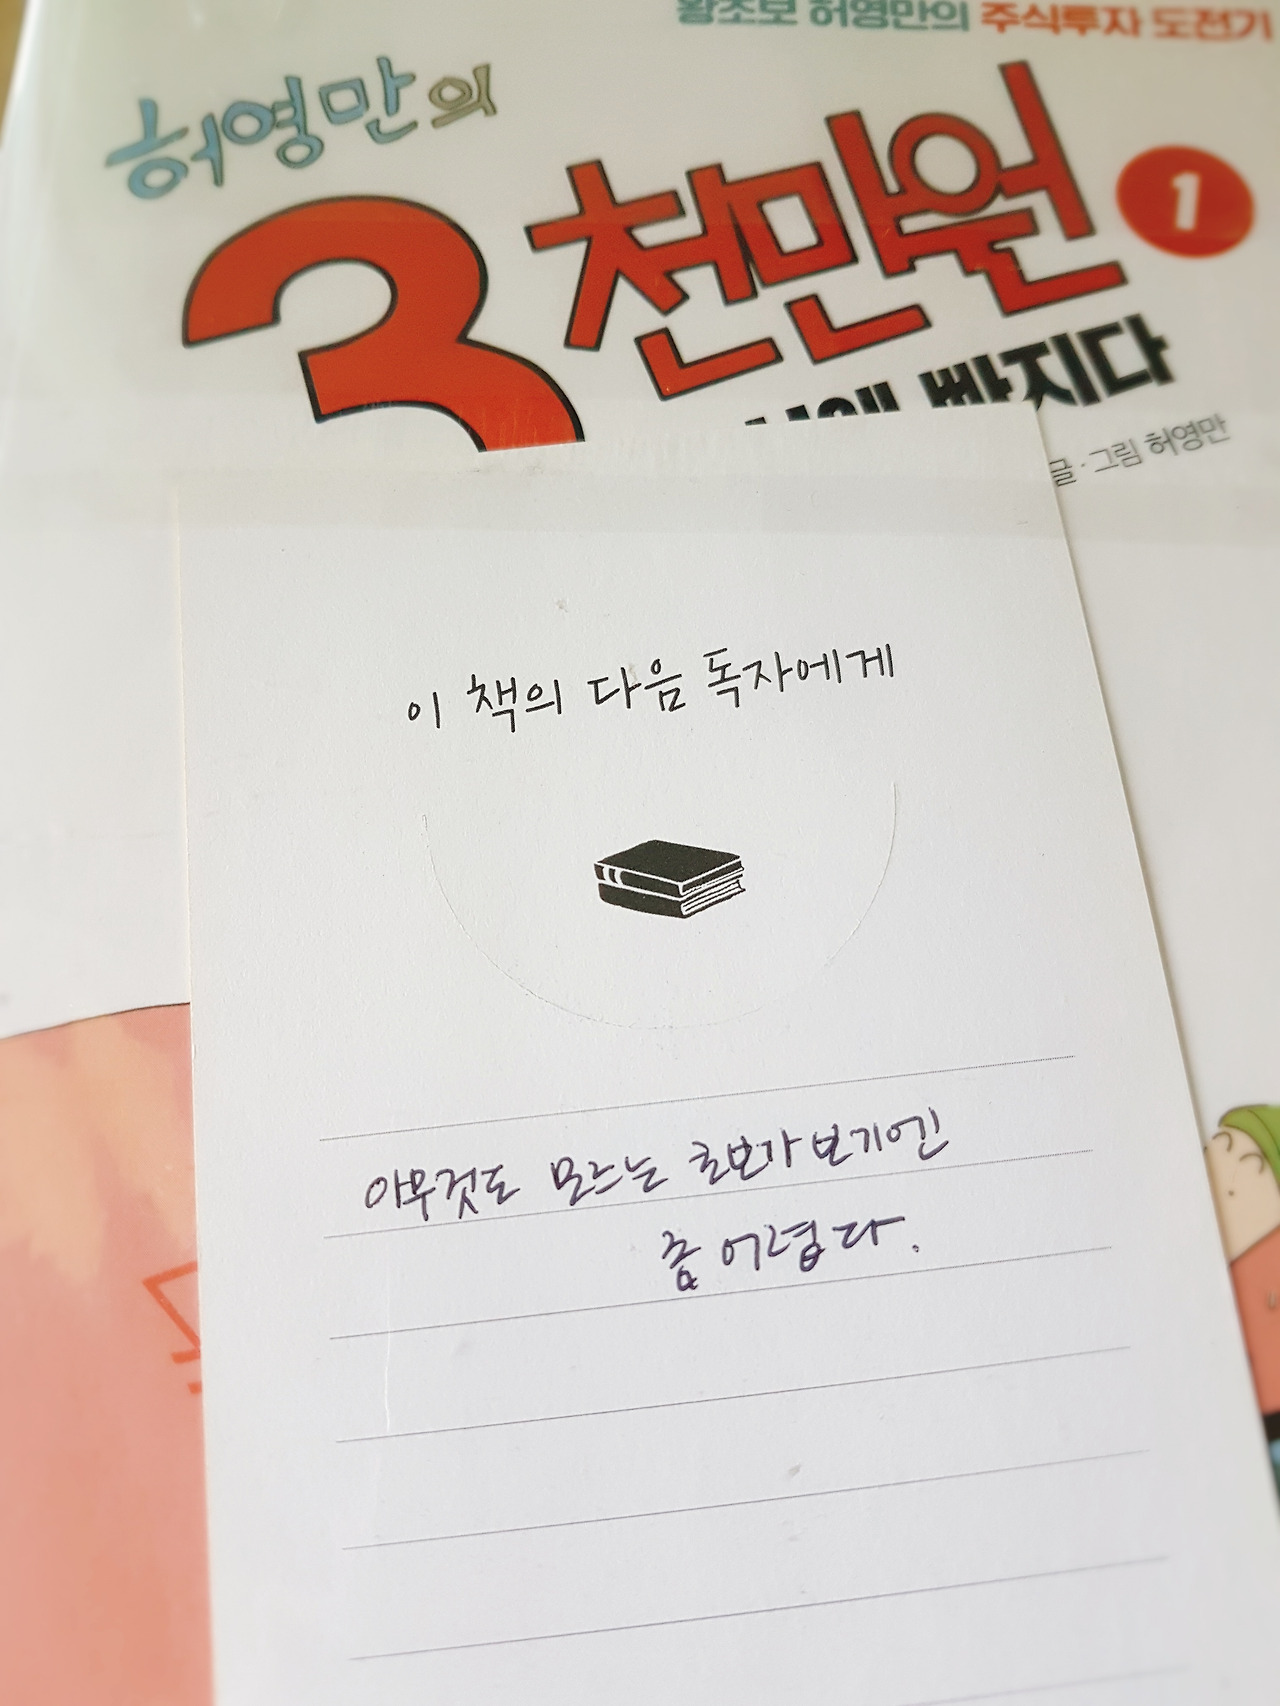 왕초보 허영만의 주식투자 도전기
허영만의
3천만원 1
빠지다
글·그림 허영만
이 책의 다음 독자에게
아무것도 모르는 초보가 보기엔
좀 어렵다.